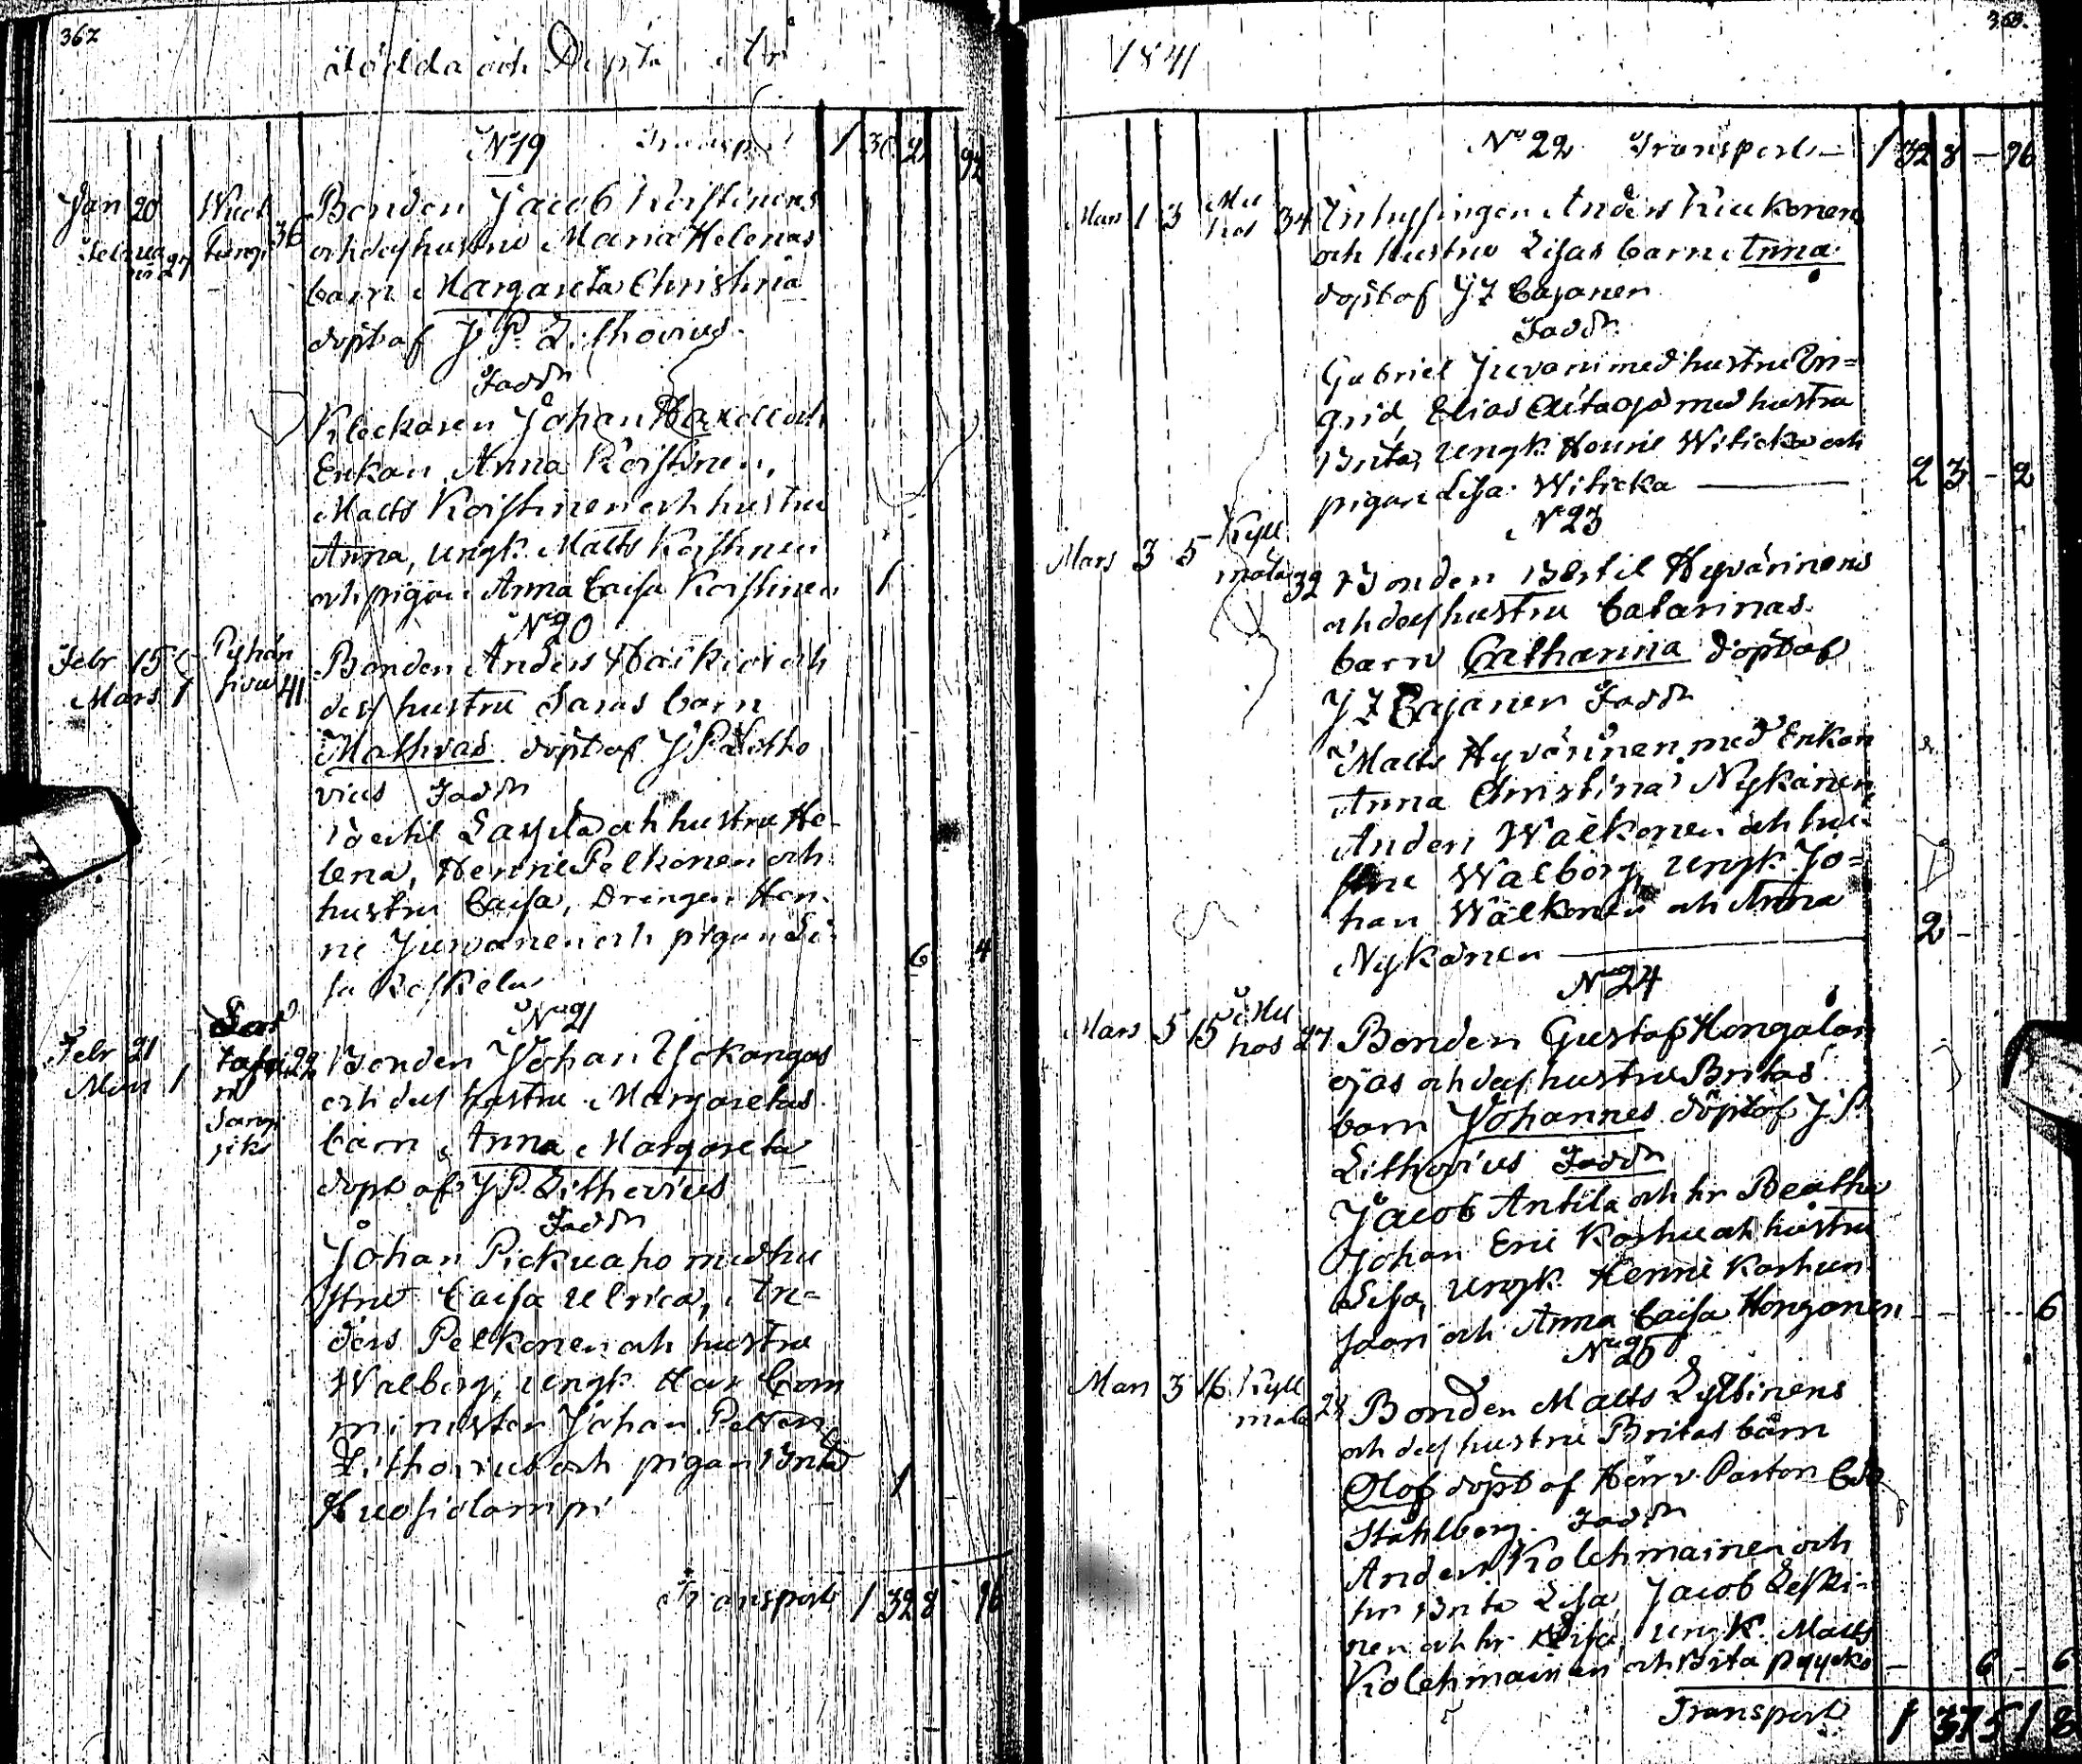 362
Födda och Döpta År
N:o 19 Transp. 1 30 2 92
Jan 20 Bonden Jacob Koistinens
Februarii 27 36 och dess hustru Maria Helenas
barn Margareta Christina
döpt af J P. Lithovius
Faddr
Klockaren Johan Haxell och
Enkan Anna Koistinen,
Matts Koistinen och hustru
Anna, Ungk. Matts Koistinen
och pigan Anna Caisa Koistinen 1
N:o 20
Febr 15 Pyhän Bonden Anders Harkioi och
Mars 1 sivu 41 dess hustru Saras barn
Mathias döpt af J P Litho
vius Faddr
Bertil Lassila och hustru He-
lena, Henric Pelkonen och
hustru Caisa, Drängen Hen-
ric Juvanen och pigan Li- 6 4
sa Koskela
N:o 21
Febr 21 22 Bonden Johan Yokangas
Mars 1 och dess hustru Margaretas
barn Anna Margareta
döpt af J P. Lithovius
Faddr
Johan Pickuaho med hu
stru Caisa Ulrica, An-
ders Pelkonen och hustru
Walborg, Ungk. Herr Com
minister Johan Petter
Lithovius och pigan Brita
Huosiolampi 1
Transport 1 32 8 96
1841
363.
N:o 22 Transport 1 32 8 - 96
Mars 1 3 Mu
hos 34 Inhysingen Anders Kiukonen
och Hustru Lisas barn Anna
döpt af J F Cajanen
Faddr
Gabriel Juvani med hustru In-
grid, Elias Alitaojo med hustru
Brita, Ungk. Henric Witicka och
pigan Lisa Witicka 2 3 - 2
N:o 23
Mars 3 5 Kyll
mälä 32 Bonden Bertil Hyvärinens
och dess hustru Catarinas
barn Catharina döpt af
J F Cajanen Faddr
Matts Hyvärinen med Enkan
Anna Christina Nykänen,
Anders Walkonen och hu-
stru Walborg, Ungk. Jo-
han Walkonen och Anna
Nykänen 2
N:o 24
Mars 5 15 Mu
hos 27 Bonden Gustaf Hongalan
ojas och dess hustru Britas
barn Johannes döpt af J P.
Lithovius Faddr
Jacob Antila och hr Beatha
Johan Eric Karhu och hustru
Lisa, Ungk. Henric Karhun
saari och Anna Caisa Honganen 6
N:o 25
Mars 3 16 Kyll
mälä 28 Bonden Matts Lyttinens
och dess hustru Britas barn
Olof döpt af Herr Pastor
Ståhlberg. Faddr
Anders Kolehmainen och
hr Brita Lisa, Jacob Leski-
nen och hr Lisa, Ungk. Matts
Kolehmainen och Brita Pyycko 6 - 6
Transport 1 37 5 1 8